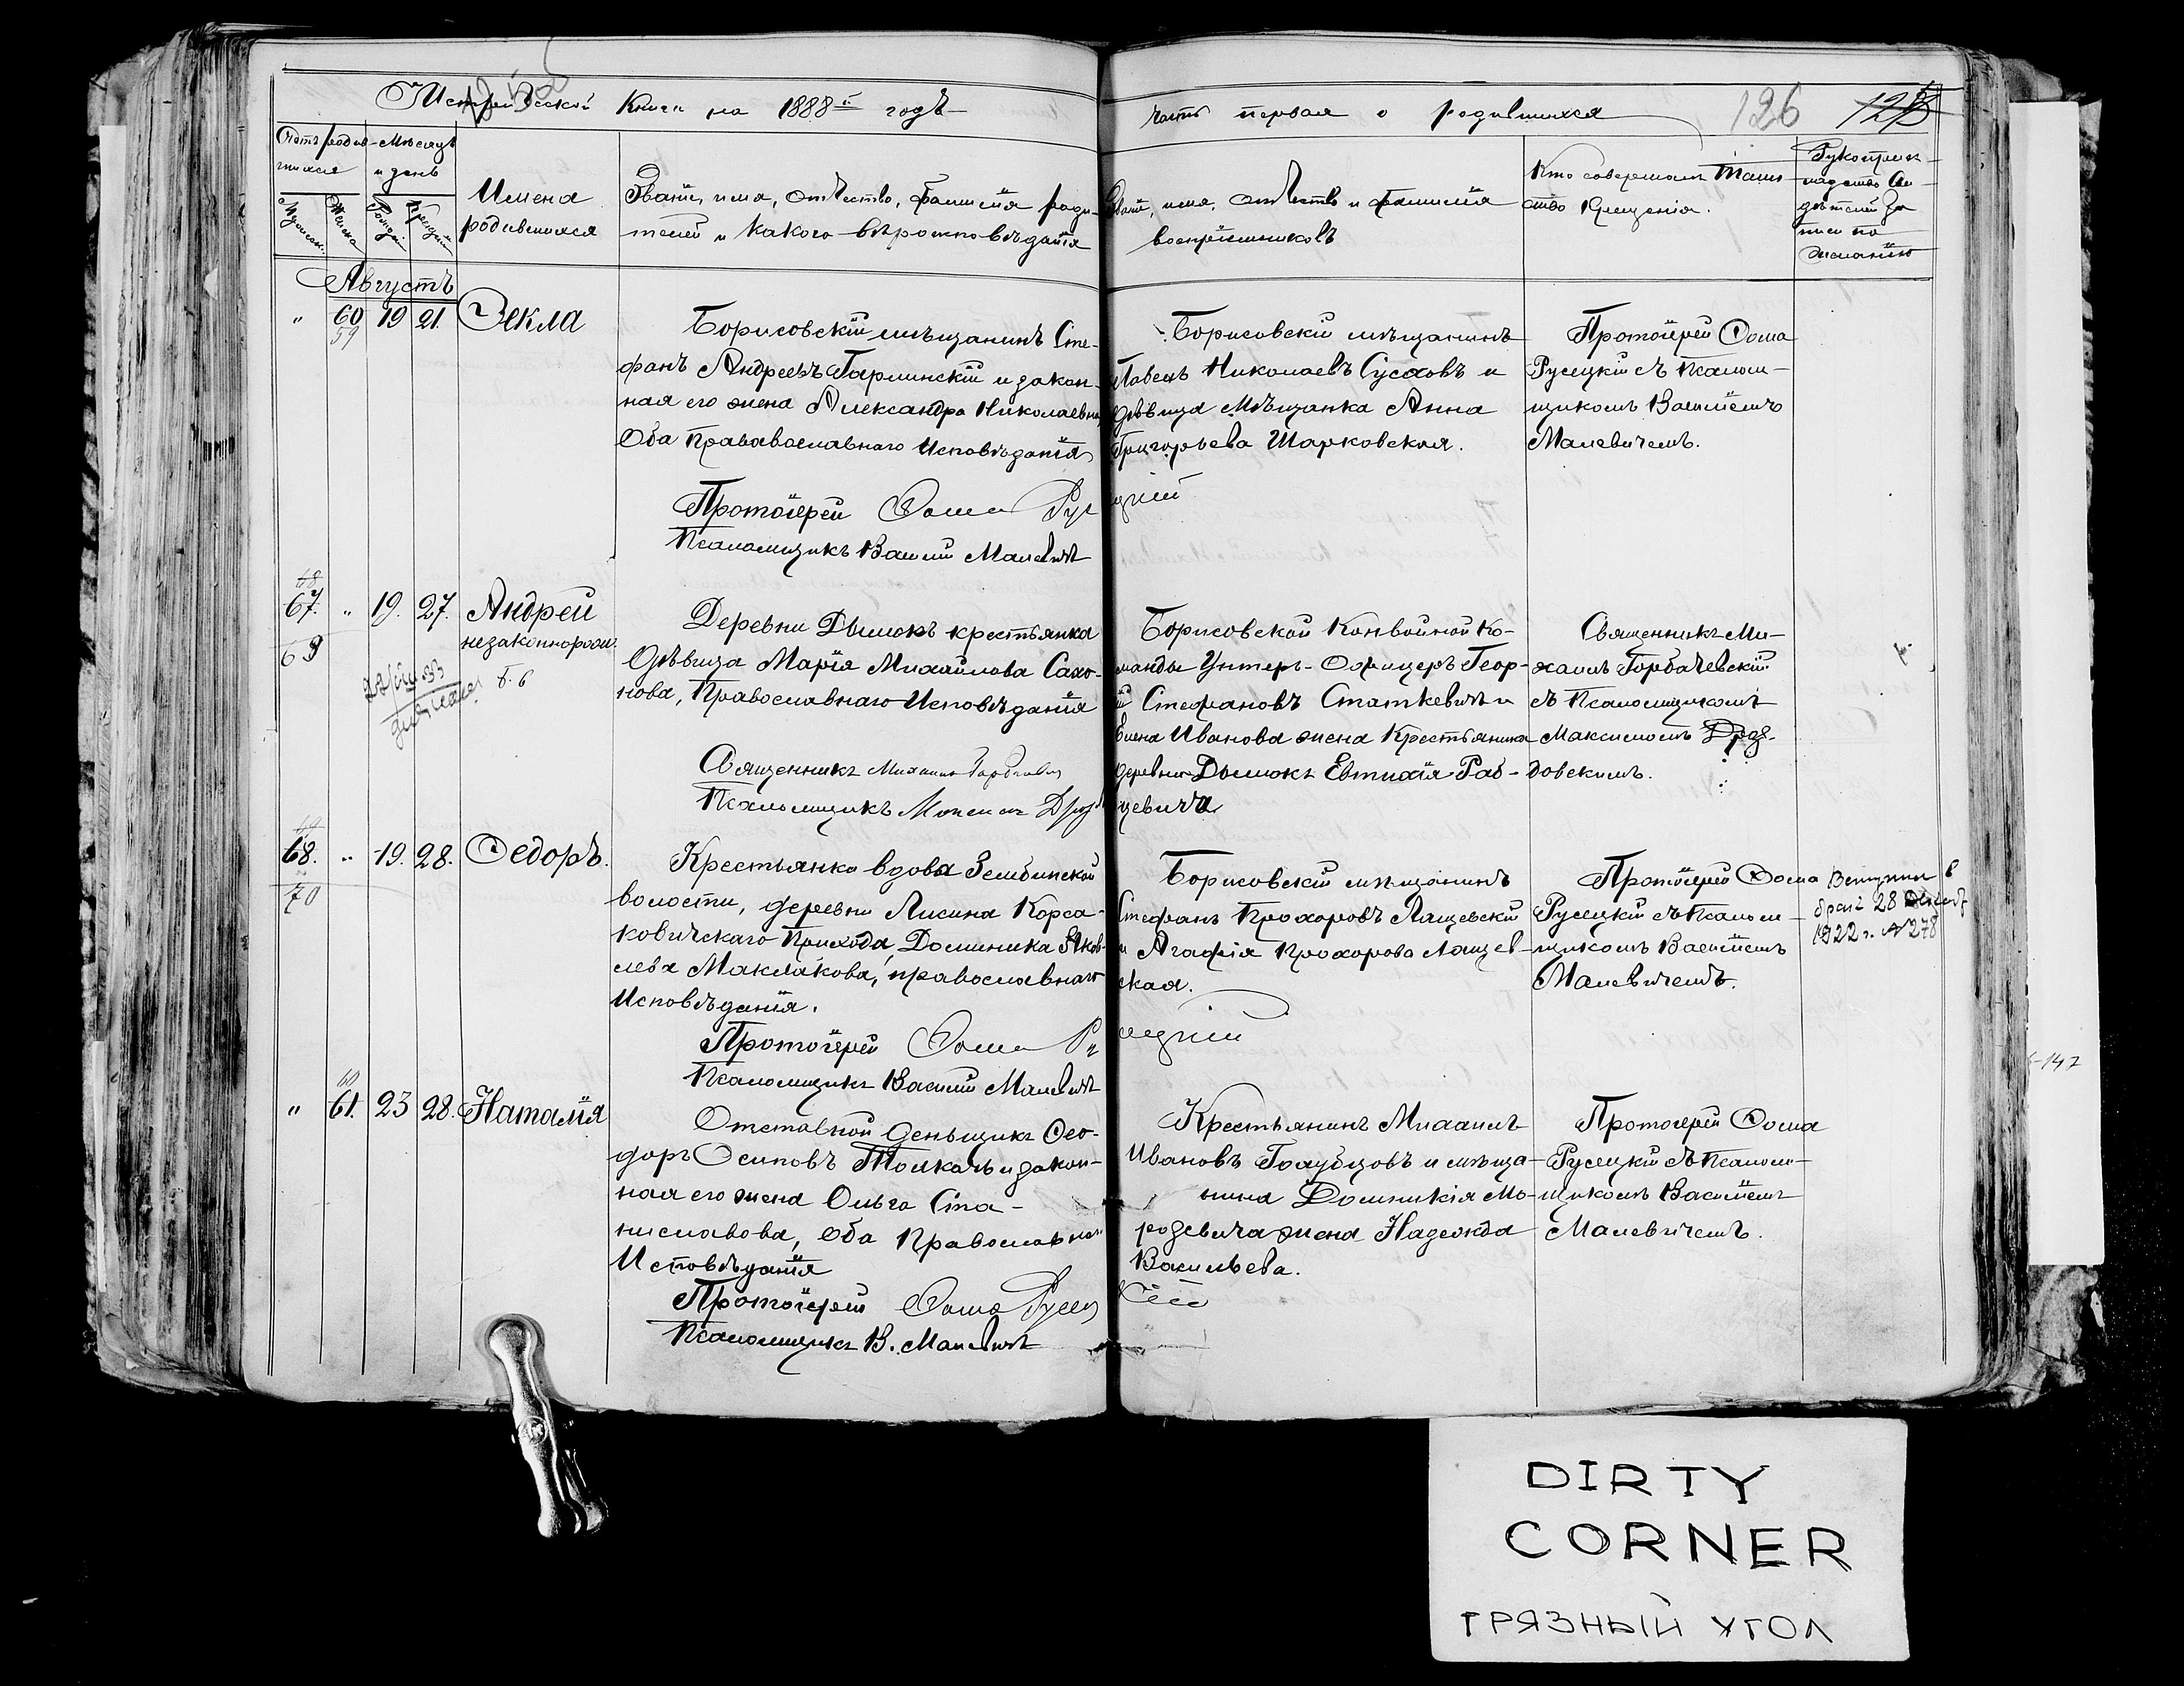 Метрической Книги на 1888й годъ
часть первая о родившихся 126
Счетъ родив- Мѣсяцъ
шихся и день
Имена
родившихся
Званіе, имя, отчество, фамилія роди-
телей и какого вѣроисповѣданія
Званіе, имя, отчество и фамилія
воспріемниковъ
Кто совершалъ таин-
ство крещенія.
Рукоприк-
ладство сви-
дѣтелей за
писи по
желанію
Августъ
" 60 19 21. Ѳекла
59
Борисовскій мѣщанинъ Сте-
фанъ Андреевъ Гарлинскій и закон-
ная его жена Александра Николаевна,
Оба Прававославнаго Исповѣданія
Протоіерей Ѳома Русецкій
Псаломщикъ Василій Малевичъ
Борисовскій мѣщанинъ
Павелъ Николаевъ Сусловъ и
дѣвица Мѣщанка Анна
Григорьева Шарковская.
Протоіерей Ѳома
Русецкій съ Псалом-
щикомъ Василіемъ
Малевичемъ.
67. " 19. 27. Андрей
незаконнорож.
69
Деревни Дымокъ крестьянка
дѣвица Марія Михайлова Сахо-
нова, Православнаго Исповѣданія
Священникъ Михаилъ Горбачевскій
Псаломщикъ Максимъ
Борисовской Конвойной Ко-
манды Унтеръ-Офицеръ Геор-
гій Стефановъ Статкевичъ и
Елена Иванова жена Крестьянина
деревни Дымокъ Евтихія Раб-
цевича
Священникъ Ми-
хаилъ Горбачевскій
съ Псаломщикомъ
Максимомъ Дроз-
довскимъ.
68. " 19. 28. Ѳедоръ.
70
Крестьянка вдова Зембинской
волости, деревни Лисина Корса-
ковичскаго Прихода, Доминика Яков-
лева Маклакова, православнаго
Исповѣданія.
Протоіерей Ѳома Русецкій
Псаломщикъ Василій Малевичъ
Борисовскій мѣщанинъ
Стефанъ Прохоровъ Лящевскій
и Агафія Прохорова Лящев-
ская.
Протоіерей Ѳома
Русецкій съ Псалом-
щикомъ Василіемъ
Малевичемъ.
Вступил в
брак 28
1922 г. № 278
60
" 61. 23 28. Наталія
Отставной деньщикъ Ѳео-
доръ Осиповъ Толкачъ и закон-
ная его жена Ольга Ста-
ниславова, Оба Православнаго
Исповѣданія
Протоіерей Ѳома Русецкій
Псаломщикъ В. Малевичъ
Крестьянинъ Михаилъ
Ивановъ Голубцовъ и мѣща-
нина Доминикія Мо-
розевича жена Надежда
Васильева.
Протоіерей Ѳома
Русецкій съ Псалом-
щикомъ Василіемъ
Малевичемъ.
DIRTY
CORNER
ГРЯЗНЫЙ УГОЛ